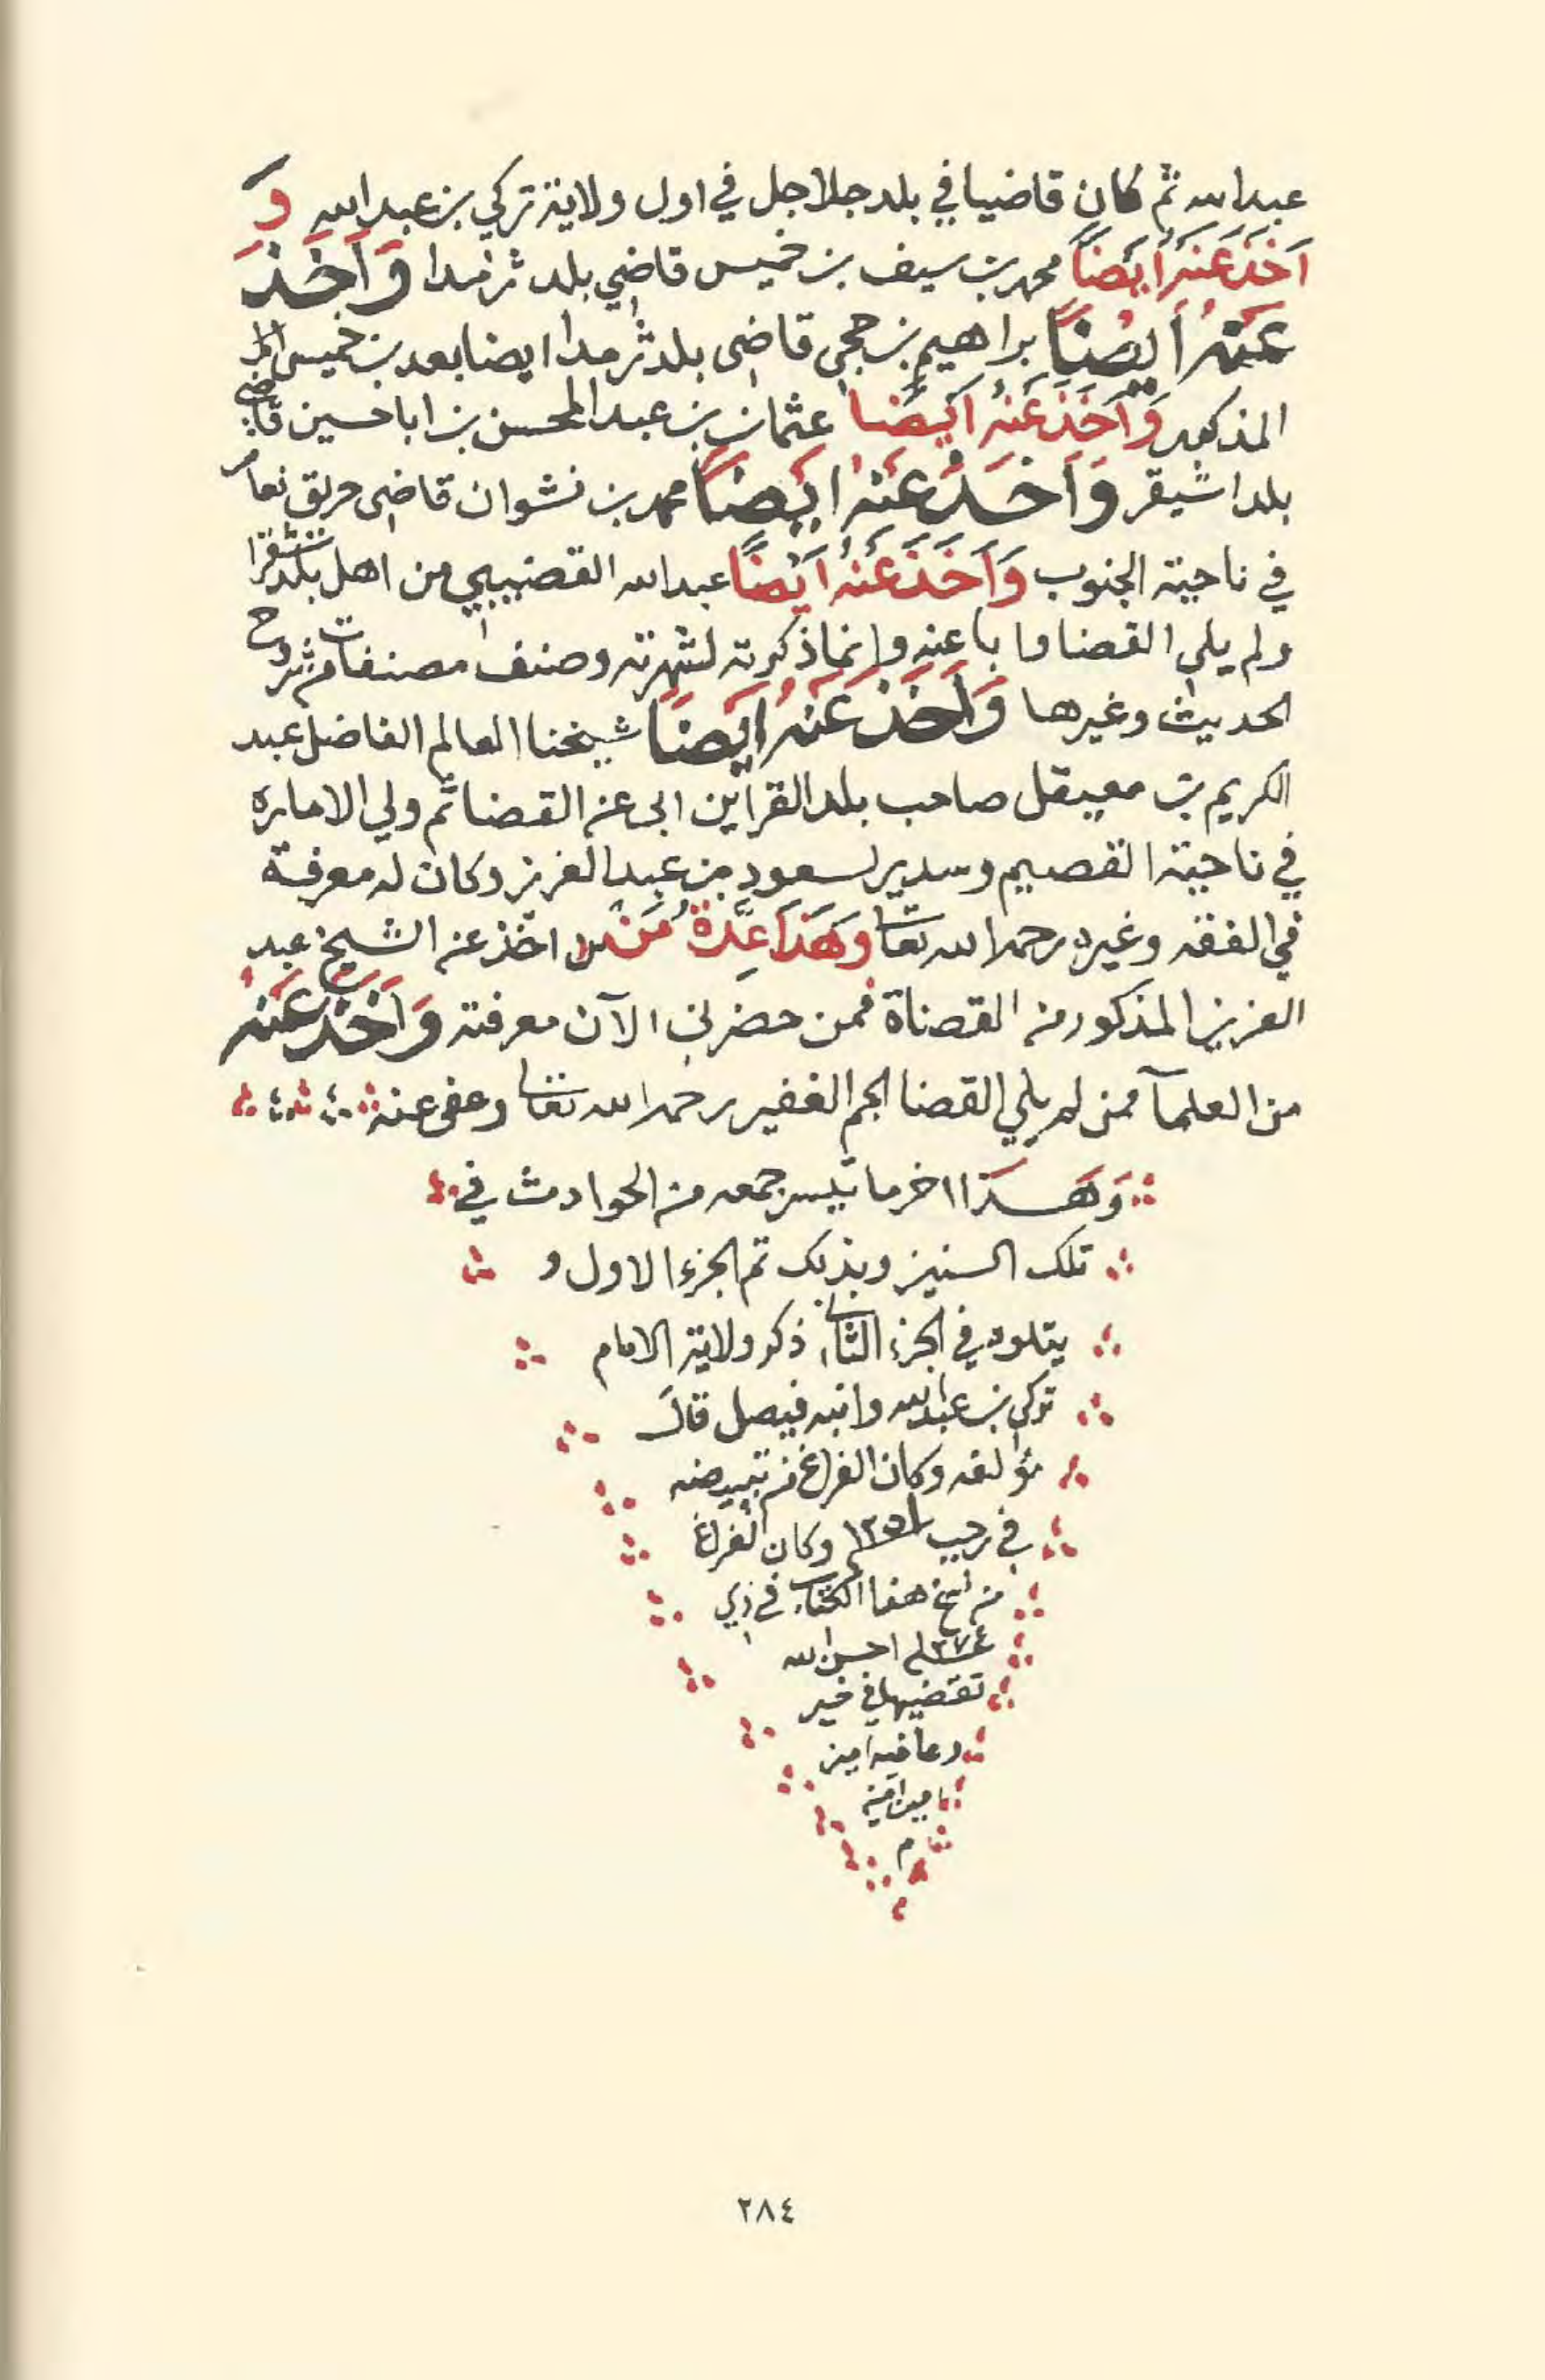 عبدالله ثم كان قاضيا في بلد جلاجل في اول ولاية تركي بن عبدالله وَ
اَخَذَ عَنْهُ اَيْضاً محمد بن سيف بن خميس قاضي بلد ثرمدا وَاَخَذَ
عَنْهُ اَيْضاً براهيم بن حجي قاضي بلد ثرمدا ايضا بعد بن خميس
المذكور وَاَخَذَ عَنْهُ اَيْضاً عثمان بن عبد المحسن بن ابا حسين قاضي
بلد اشيقر وَاَخَذَ عَنْهُ اَيْضاً محمد بن نشوان قاضي حريق نعام
في ناحية الجنوب وَاَخَذَ عَنْهُ اَيْضاً عبدالله القضيبي من اهل بلد شقرا
ولم يلي القضا وابا عنه وانما ذكرته لشهرته وصنف مصنفات في شروح
الحديث وغيرها وَاَخَذَ عَنْهُ اَيْضاً شيخنا العالم الفاضل عبد
الكريم بن معيقل صاحب بلد القراين ابى عن القضا ثم ولي الاماره
في ناحية القصيم وسدير لسعود بن عبد العزيز وكان له معرفة
في الفقه وغيره رحمه الله تعالى وَهَذَا عِدَّةُ مَنْ اخذ عنه الشيخ عبد
العزيز المذكور من القضاة فمن حضرني الآن معرفته وَاَخَذَ عَنْهُ
من العلمآ ممن لم يلي القضا الجم الغفير رحمه الله تعالى وعفى عنه
وَهَذَا اخر ما تيسر جمعه من الحوادث في
تلك السنين وبذلك تم الجزء الاول و
يتلوه في الجزء الثاني ذكر ولاية الامام
تركي بن عبدالله وابنه فيصل قال
مؤلفه وكان الفراغ من تبييضه
في رجب سنة ١٢٥١ وكان الفراغ
من نسخ هذا الكتاب في ذي
احسن الله
تقضيها في خير
وعافيه امين
امين
م
٢٨٤